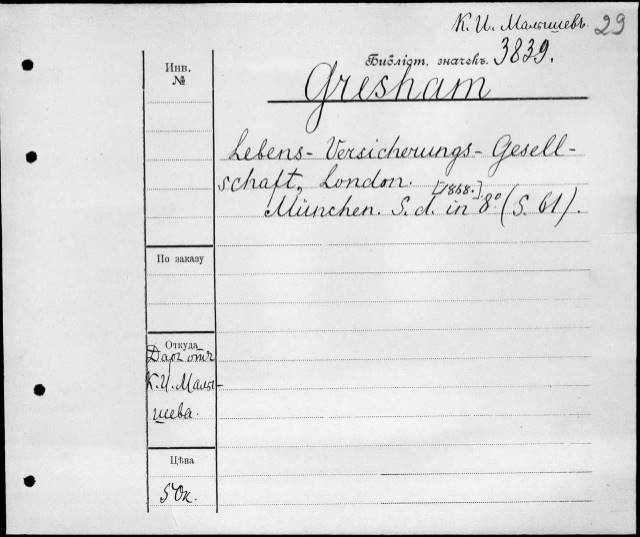 К. И. Малышевъ. 29
Библіот. значекъ. 3839.
Инв. №
Gresham
Lebens-Versicherungs-Gesell-
schaft, London.
[1868.]
München. S. d. in 8° (S. 61).
По заказу
Откуда
Даръ отъ
К. И. Малы-
шева.
Цѣна
50к.